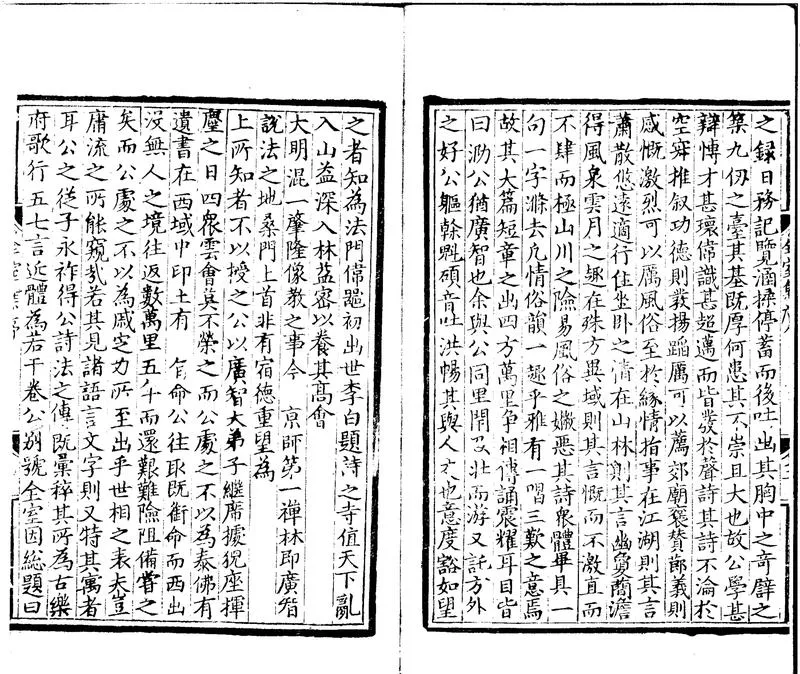 之録日務記覽涵揉停蓄而後吐出其胸中之奇譬之
築九仞之臺其基既厚何患其不崇且大也故公學甚
辯博才甚瓌偉識甚超邁而皆發於聲詩其詩不淪於
空寂推叙功德則發揚蹈厲可以薦郊廟褒贊節義則
感慨激烈可以厲風俗至於緣情指事在江湖則其言
蕭散悠遠適行住坐卧之情在山林則其言幽夐簡澹
得風泉雲月之趣在殊方異域則其言慨而不激直而
不肆而極山川之險易風俗之媺惡其詩衆體畢具一
句一字滌去凡情俗韻一趣乎雅有一唱三歎之意焉
故其大篇短章之出四方萬里争相傳誦震耀耳目皆
曰泐公猶廣智也余與公同里閈及壯而游又託方外
之好公軀幹魁碩音吐洪暢其與人交也意度豁如望
之者知為法門偉器初出世李白題詩之寺值天下亂
入山益深入林益密以養其高會
大明混一肇隆像教之事今 京師第一禪林即廣智
說法之地桑門上首非有宿德重望為
上所知者不以授之公以廣智大弟子繼席據猊座揮
麈之日四衆雲會莫不榮之而公處之不以為泰佛有
遺書在西域中印土有 旨命公往取既銜命而西出
没無人之境往返數萬里五年而還艱難險阻備嘗之
矣而公處之不以為戚定力所至出乎世相之表夫豈
庸流之所能窺哉若其見諸語言文字則又特其寓者
耳公之從子永祚得公詩法之傳既彙稡其所為古樂
府歌行五七言近體為若干卷公别號全室因総題曰